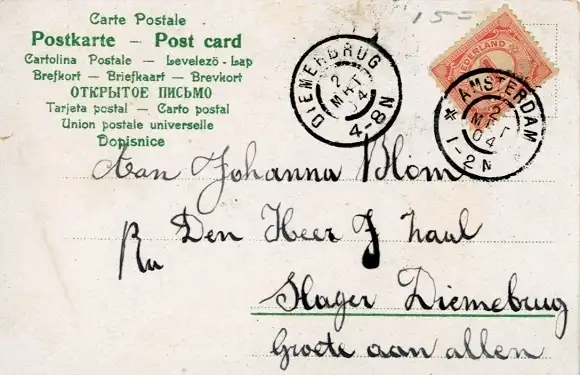 Carte Postale
Postkarte — Post card
Cartolina Postale — Levelező-Lap
Brefkort — Briefkaart — Brevkort
ОТКРЫТОЕ ПИСЬМО
Tarjeta postal — Carto postal
Union postale universelle
Dopisnice
15=
NEDERLAND
DIEMERBRUG
2
MRT
04
4-8N
AMSTERDAM
2
MRT
04
1-2N
Aan Johanna Blom
Den Heer J Maul
Slager Diemebrug
Groete aan allen